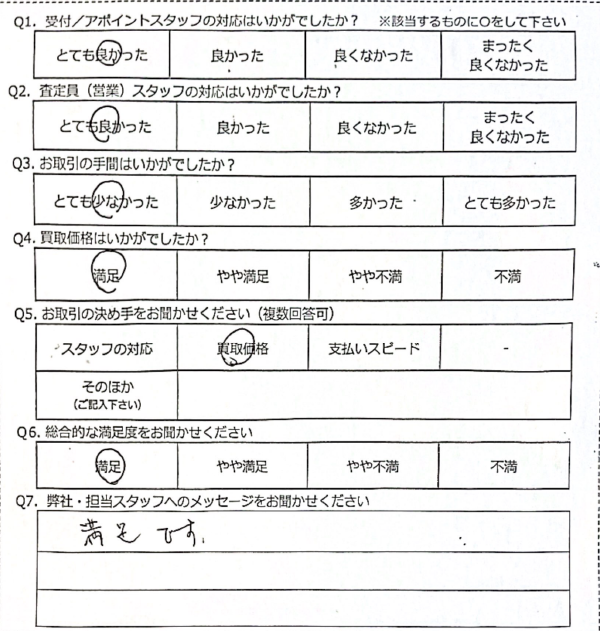 Q1. 受付／アポイントスタッフの対応はいかがでしたか？ ※該当するものに○をして下さい
とても良かった 良かった 良くなかった まったく良くなかった
Q2. 査定員（営業）スタッフの対応はいかがでしたか？
とても良かった 良かった 良くなかった まったく良くなかった
Q3. お取引の手間はいかがでしたか？
とても少なかった 少なかった 多かった とても多かった
Q4. 買取価格はいかがでしたか？
満足 やや満足 やや不満 不満
Q5. お取引の決め手をお聞かせください（複数回答可）
スタッフの対応 買取価格 支払いスピード -
そのほか
（ご記入下さい）
Q6. 総合的な満足度をお聞かせください
満足 やや満足 やや不満 不満
Q7. 弊社・担当スタッフへのメッセージをお聞かせください
満足です。